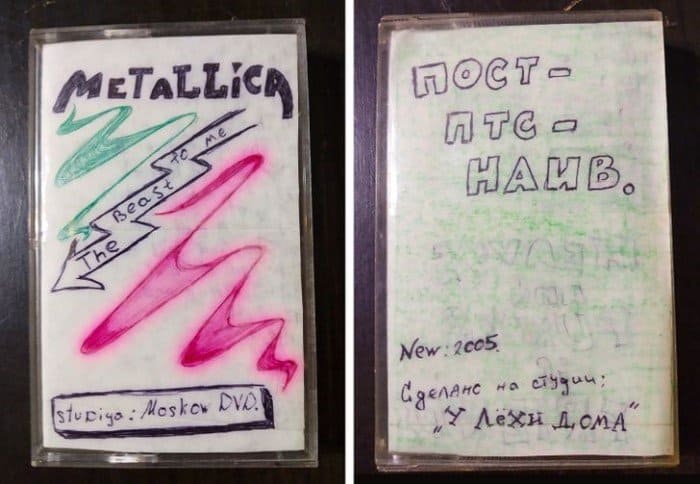 METALLiCA
The Beast To me
studiya: Moskow DVD.
ПОСТ-
ПТС-
НАИВ.
New: 2005.
Сделано на студии:
„У ЛЁХИ ДОМА“